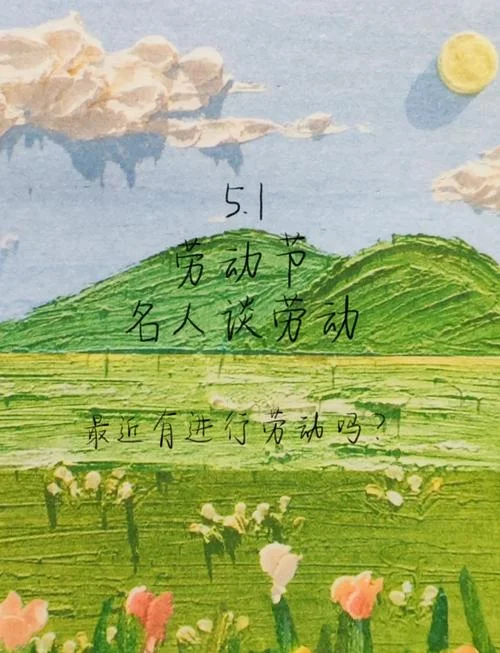 5.1
劳动节
名人谈劳动
最近有进行劳动吗?